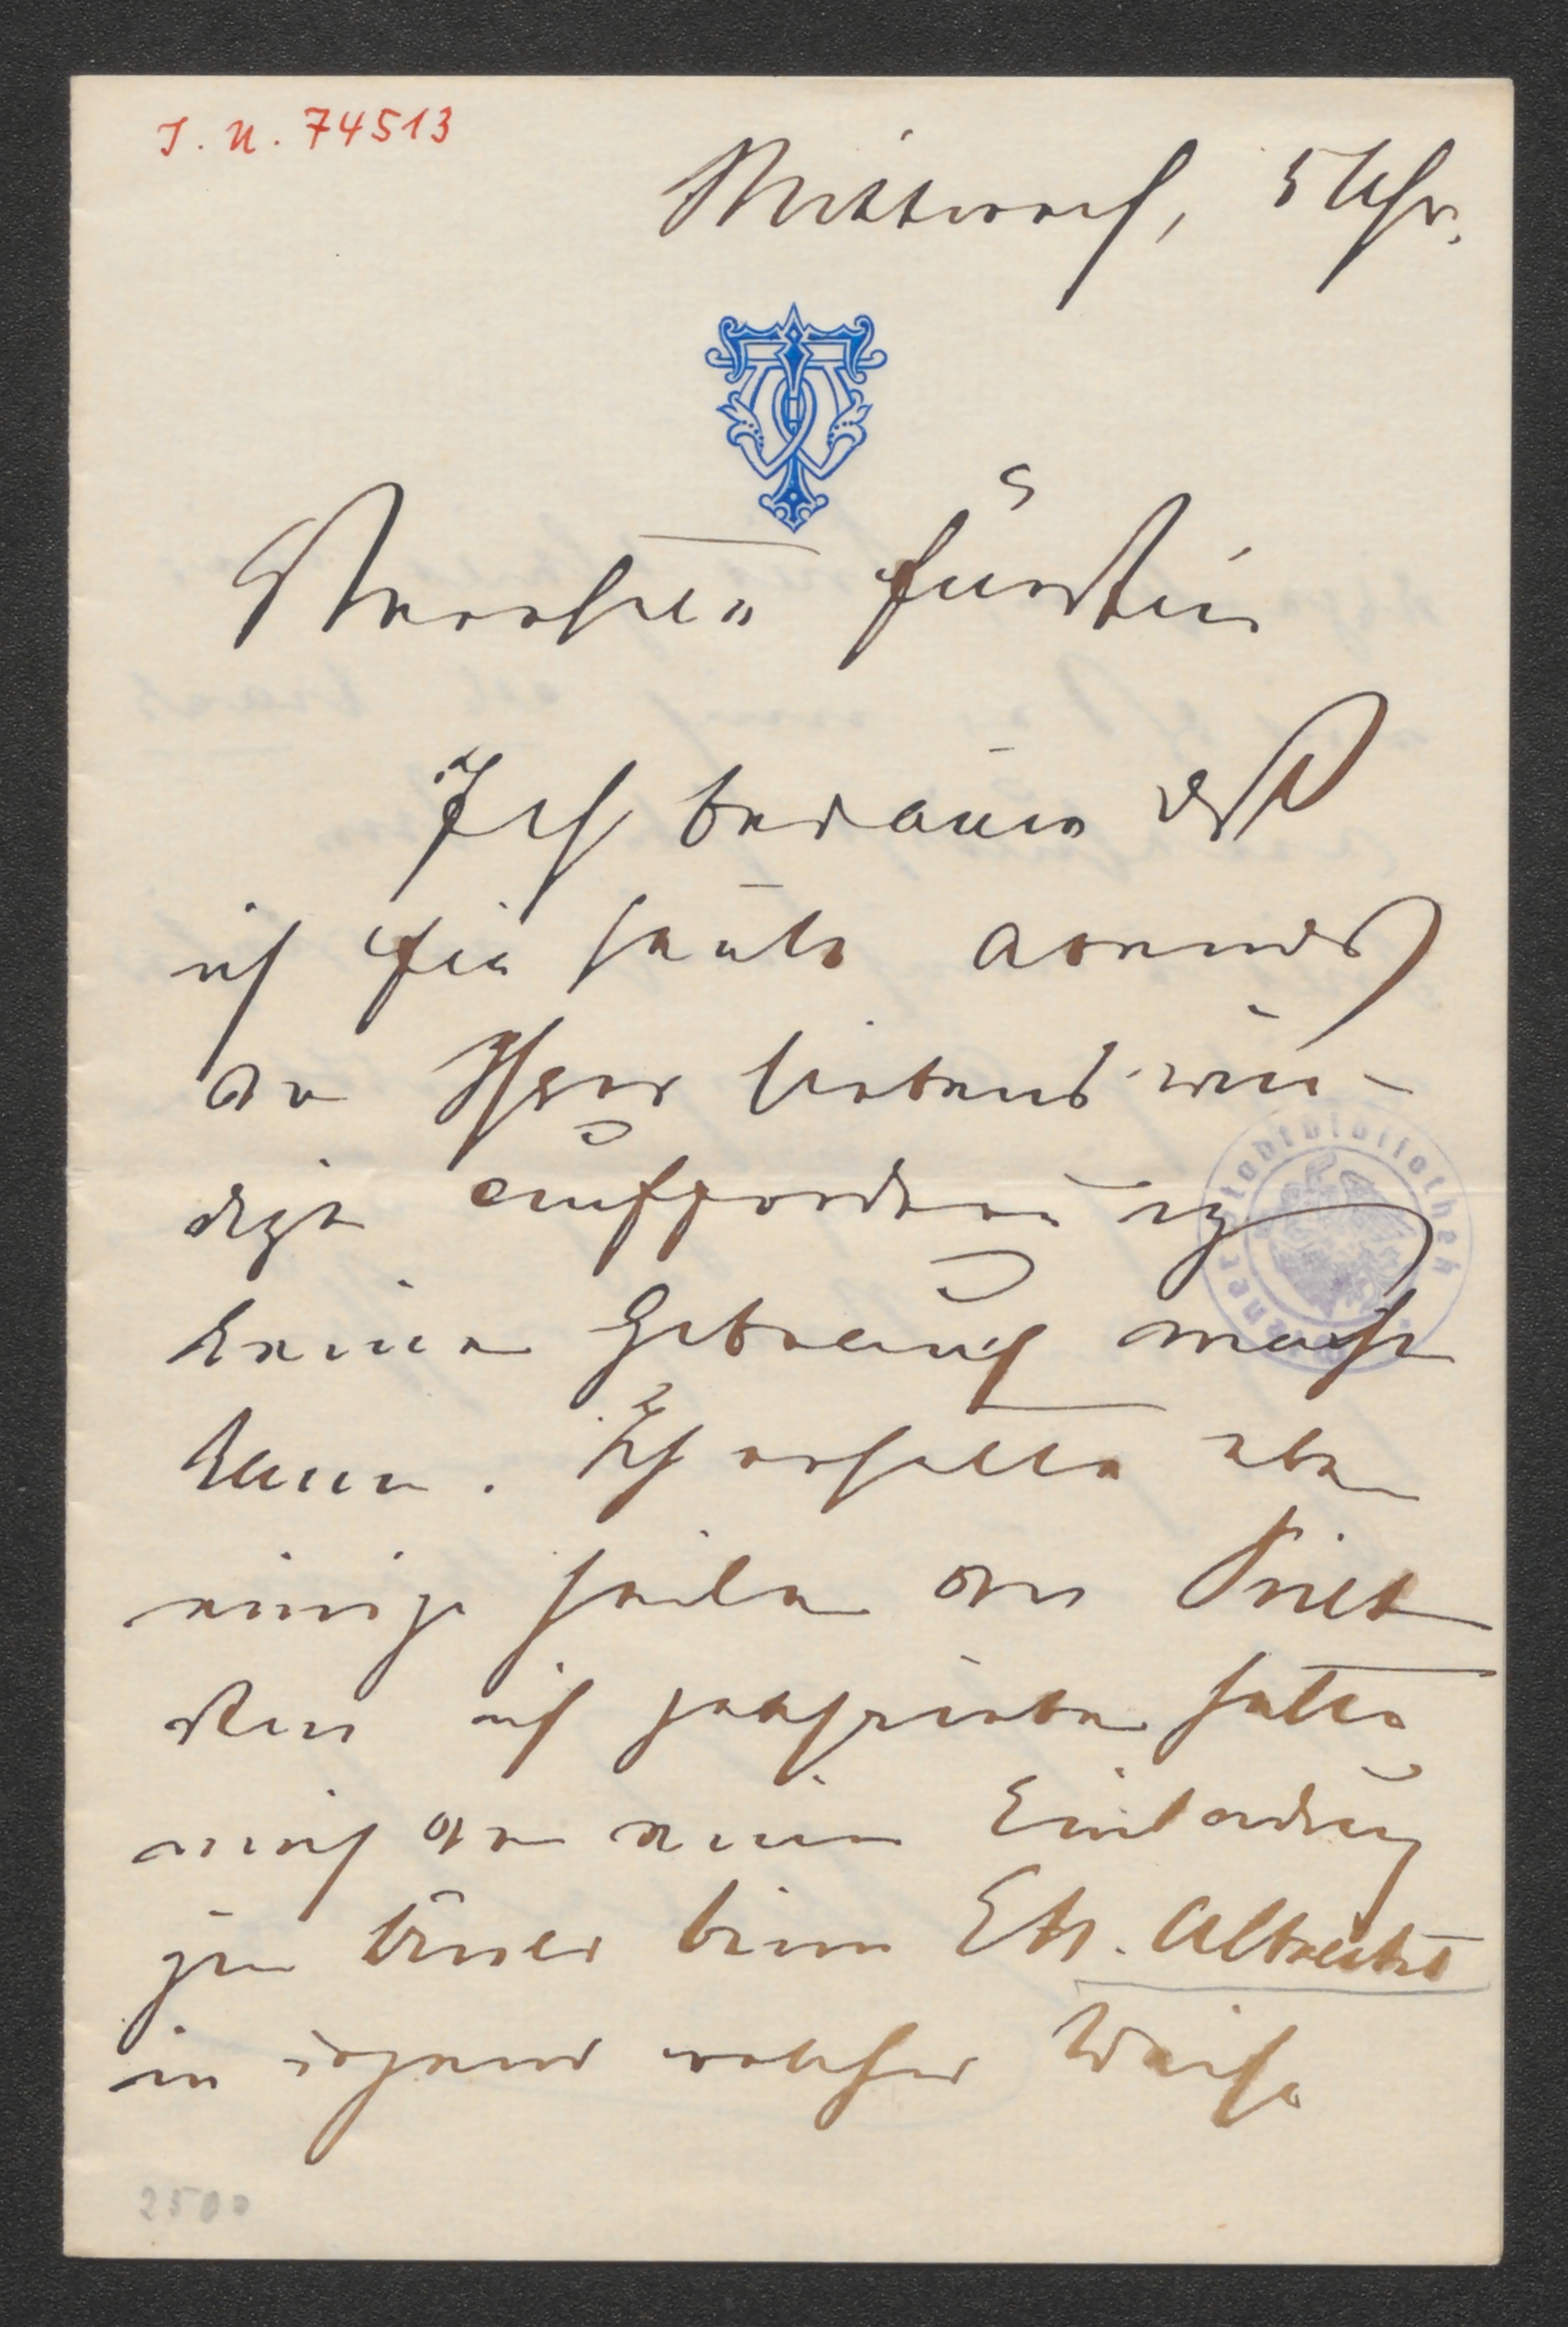 I. N. 74513
Mittwoch, 5 Uhr.
Verehrte Fürstin
Ich bedaure daß
ich für heute abends
von Ihrer liebenswür-
digen Aufforderung
keinen Gebrauch machen
kann. Ich erhalte eben
einige Zeilen von
dem ich geschrieben hatte
mich von einer Einladung
zum Diner beim Eh. Albrecht
in irgend welcher Weise
Wiener Stadtbibliothek
2500